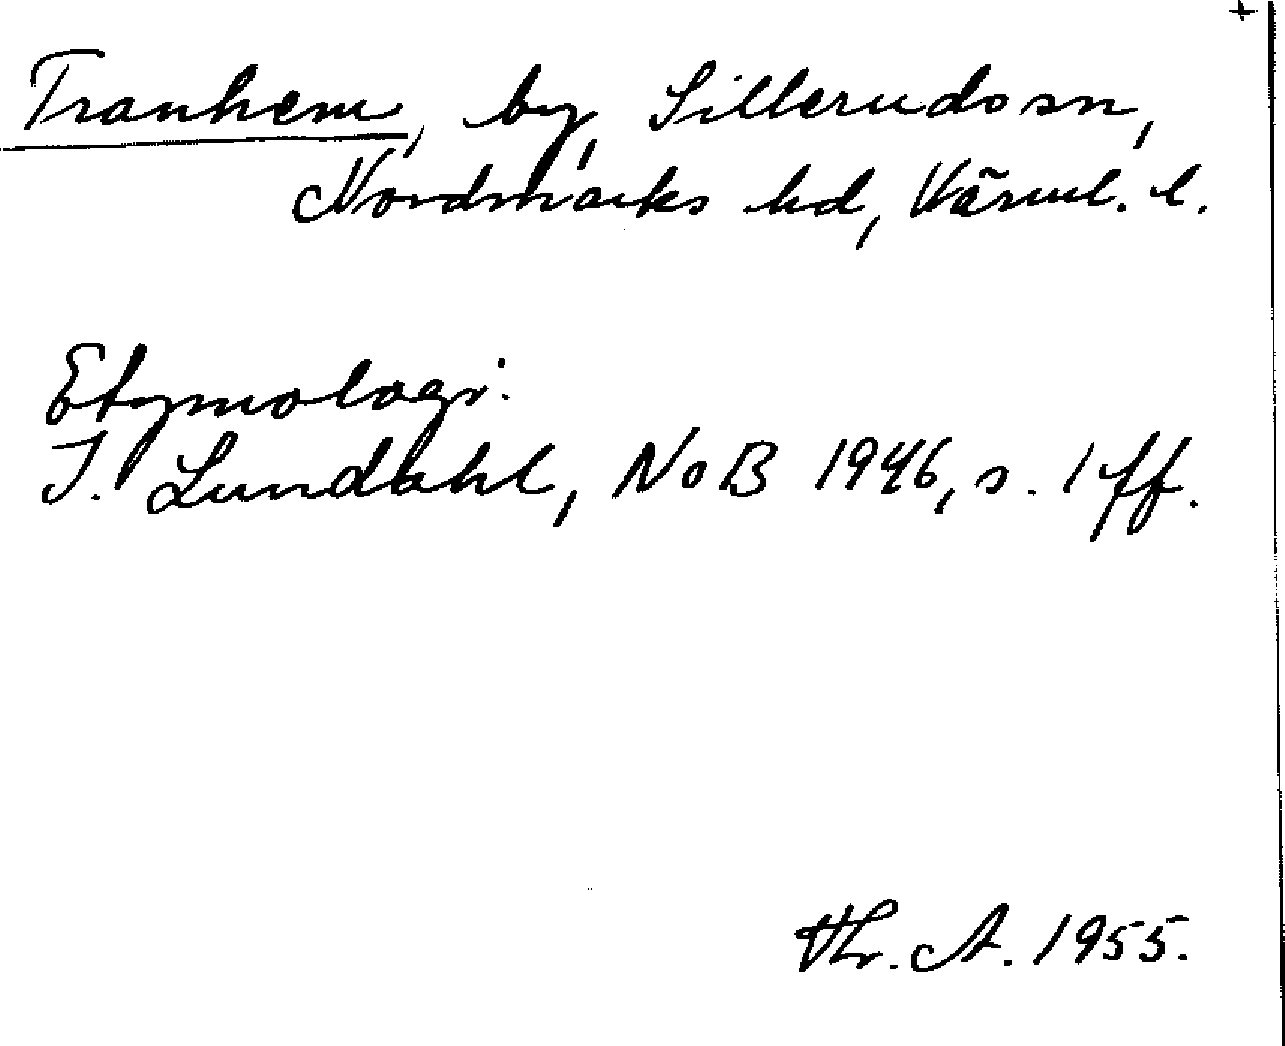 +
Tranhem, by, Silleruds sn,
Nordmarks hd, Värml. l.
Etymologi:
I. Lundahl, NoB 1946, s. 1 ff.
A. 1955.